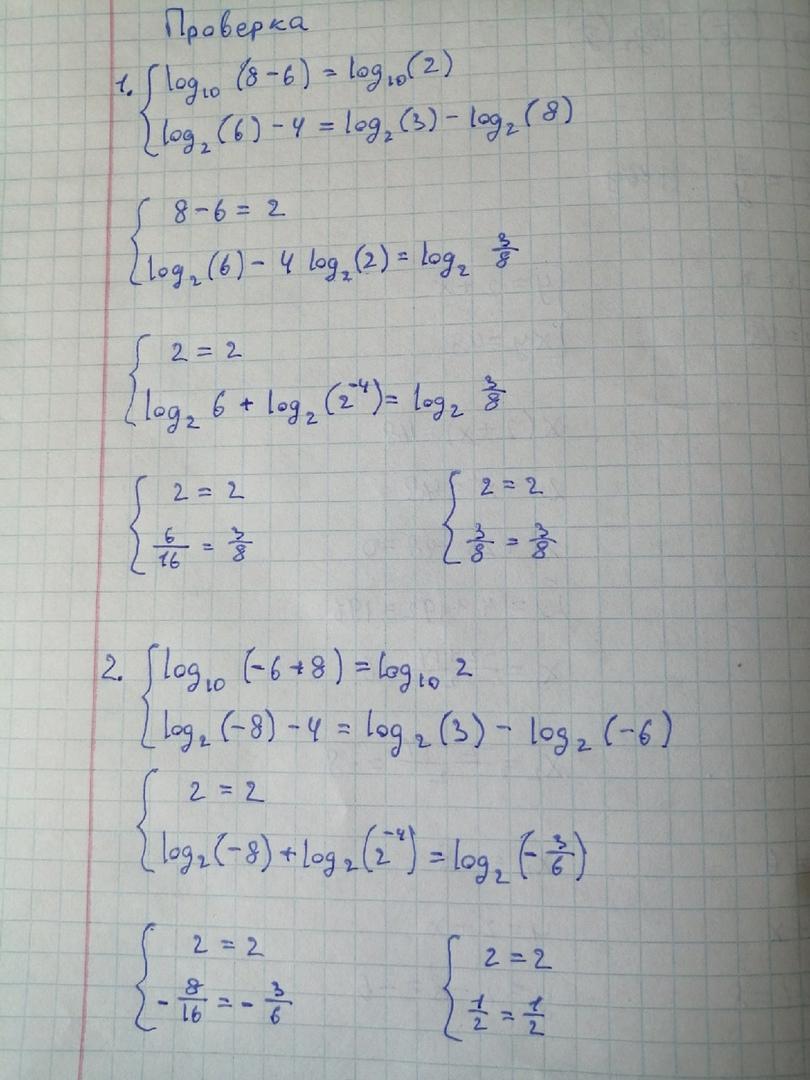 Проверка
1. { log₁₀ (8-6) = log₁₀(2)
log₂(6) - 4 = log₂(3) - log₂(8)
{ 8-6 = 2
log₂(6) - 4 log₂(2) = log₂ 3/8
{ 2 = 2
log₂ 6 + log₂(2⁻⁴) = log₂ 3/8
{ 2 = 2 { 2 = 2
6/16 = 3/8 3/8 = 3/8
2. { log₁₀ (-6+8) = log₁₀ 2
log₂(-8) - 4 = log₂(3) - log₂(-6)
{ 2 = 2
log₂(-8) + log₂(2⁻⁴) = log₂(-3/6)
{ 2 = 2 { 2 = 2
-8/16 = -3/6 1/2 = 1/2